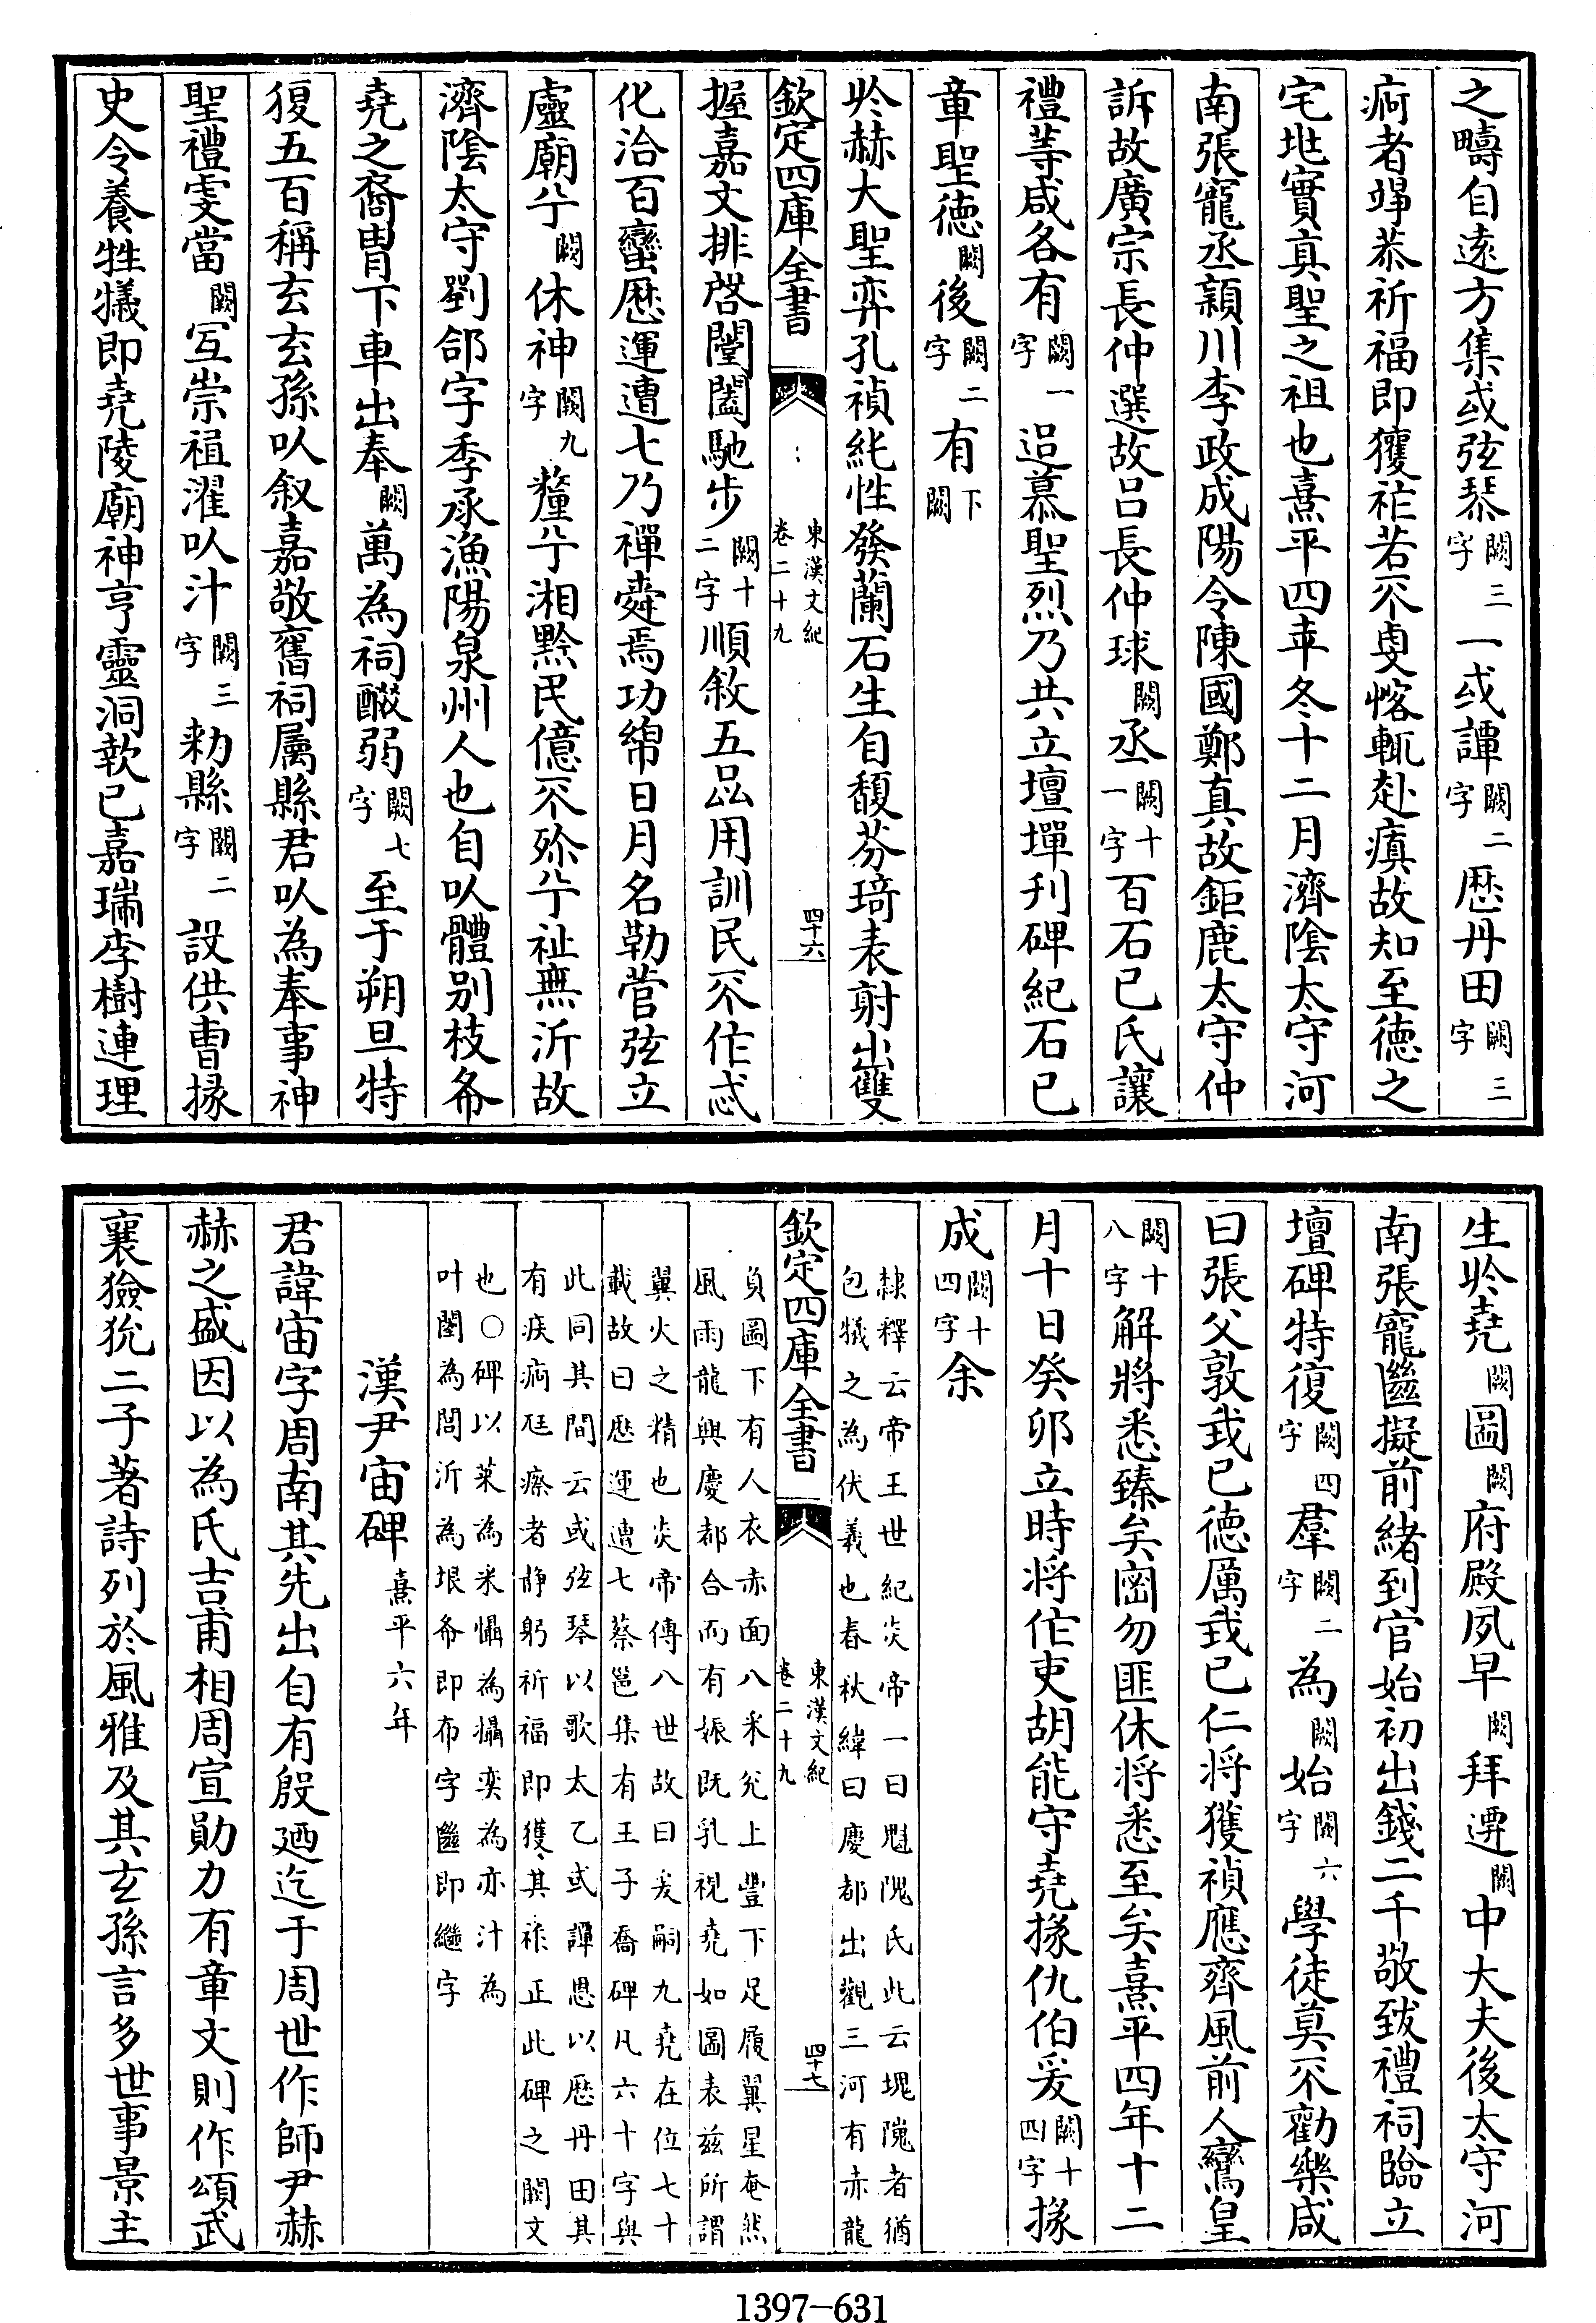 之疇自遠方集或弦琴闕三字一或譚闕二字歷丹田闕三字
痾者竫恭祈福即獲祚若不虔愘輒赴瘨故知至德之
宅兆實真聖之祖也熹平四年冬十二月濟隂太守河
南張寵丞潁川李政成陽令陳國鄭真故鉅鹿太守仲
訴故廣宗長仲選故吕長仲球闕丞闕十一字百石已氏讓
禮等咸各有闕一字追慕聖烈乃共立壇墠刋碑紀石已
章聖徳闕後闕二字有下闕
於赫大聖弈孔禎純性發蘭石生自馥芬琦表射出雙
欽定四庫全書 東漢文紀 卷二十九 四十六
握嘉文排啓閶闔馳步闕十二字順敘五品用訓民不作忒
化洽百蠻歷運遭七乃禪舜焉功綿日月名勒管弦立
虛廟兮闕休神闕九字釐兮湘黔民億不殄兮祉無沂故
濟隂太守劉郃字季承漁陽泉州人也自㕥體別枝㠯
堯之裔胄下車出奉闕萬為祠醊弱闕七字至于朔旦特
復五百稱玄玄孫㕥叙嘉敬舊祠屬縣君㕥為奉事神
聖禮雯當闕冝崇祖濯㕥汁闕三字勑縣闕二字設供曹掾
史令養牲犧即堯陵廟神亨靈洞歆已嘉瑞李樹連理
生於堯闕圖闕府殿夙早闕拜遷闕中大夫後太守河
南張寵㡭擬前緒到官始初出錢二千敬致禮祠臨立
壇碑特復闕四字羣闕二字為闕始闕六字學徒莫不勸樂咸
曰張父敦我已德厲我已仁将獲禎應齊風前人鸞皇
闕十八字解將悉臻矣𡇌勿匪休将悉至矣熹平四年十二
月十日癸卯立時将作吏胡能守堯掾仇伯爰闕十四字掾
成闕十四字余
隸釋云帝王世紀炎帝一曰魁隗氏此云塊隗者猶
包犧之為伏羲也春秋緯曰慶都出觀三河有赤龍
欽定四庫全書 東漢文紀 卷二十九 四十七
負圖下有人衣赤面八采兊上豐下足履翼星奄然
風雨龍與慶都合而有娠既乳視堯如圖表兹所謂
翼火之精也炎帝傳八世故曰爰嗣九堯在位七十
載故曰歷運遭七蔡邕集有王子喬碑凡六十字與
此同其間云或弦琴以歌太乙或譚思以歷丹田其
有疾痾尫瘵者静躬祈福即獲其祚正此碑之闕文
也〇碑以莱為米懾為攝奕為亦汁為
叶閨為閭沂為垠㠯即布字㡭即繼字
漢尹宙碑熹平六年
君諱宙字周南其先出自有殷廼迄于周世作師尹赫
赫之盛因以為氏吉甫相周宣勛力有章文則作頌武
襄獫狁二子著詩列於風雅及其玄孫言多世事景主
1397—631